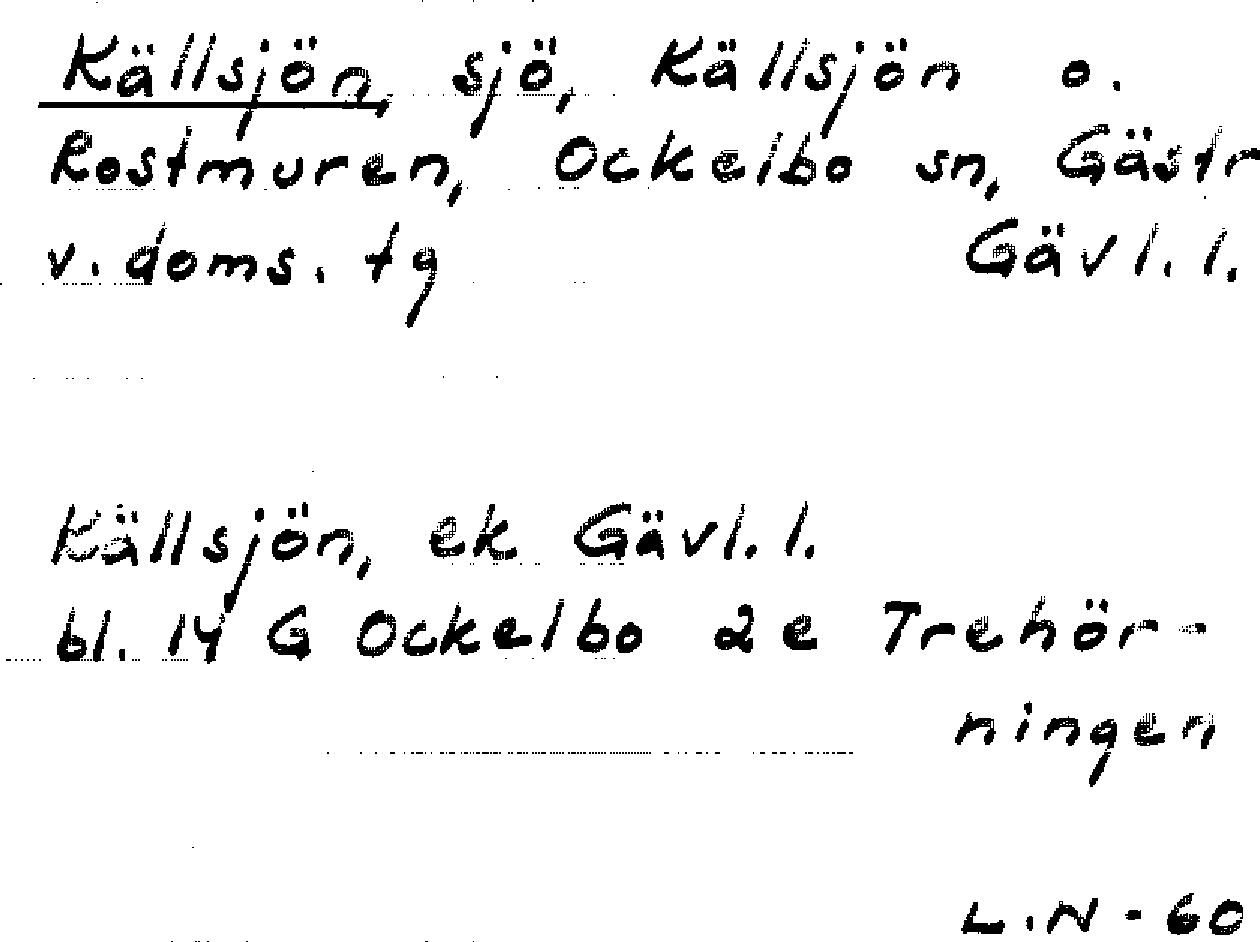 Källsjön, sjö, Källsjön o.
Rostmuren, Ockelbo sn, Gästr
v. doms. tg Gävl. l.
Källsjön, ek Gävl. l.
bl. 14 G Ockelbo 2e Trehör-
ningen
L.N - 60